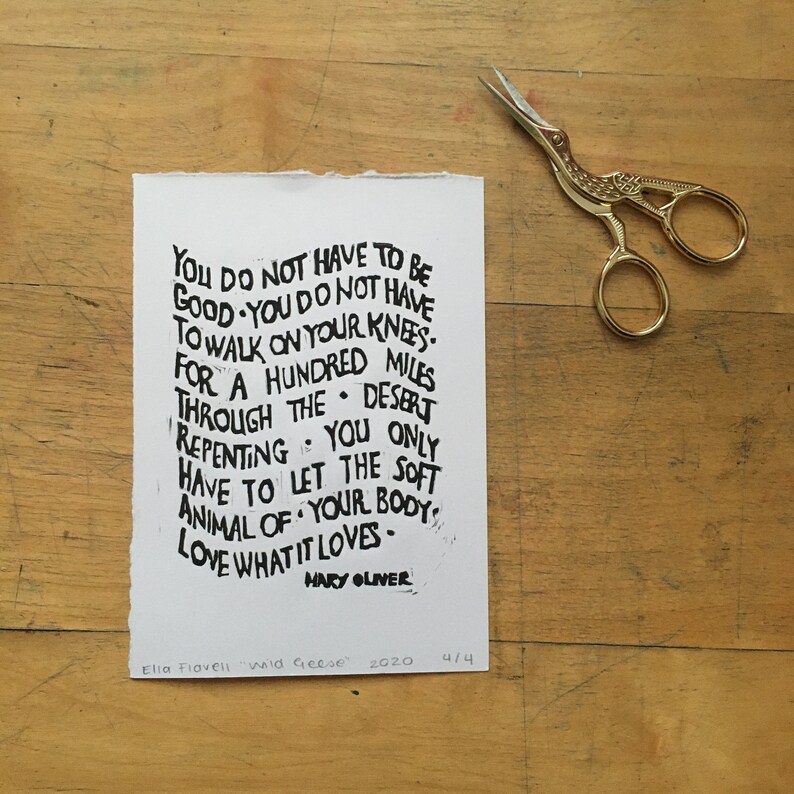 YOU DO NOT HAVE TO BE
GOOD • YOU DO NOT HAVE
TO WALK ON YOUR KNEES •
FOR A HUNDRED MILES
THROUGH THE • DESERT
REPENTING • YOU ONLY
HAVE TO LET THE SOFT
ANIMAL OF • YOUR BODY •
LOVE WHAT IT LOVES •
MARY OLIVER
Ella Flavell "Wild Geese" 2020 4/4